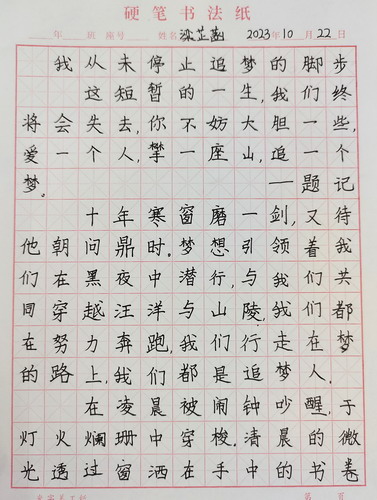 硬笔书法纸
年 班 座号 姓名 梁芷菡 2023年10月22日
我从未停止追梦的脚步
这短暂的一生,我们终
将会失去,你不妨大胆一些,
爱一个人,攀一座山,追一个
梦。 ——题记
十年寒窗磨一剑,又待
他朝问鼎时.梦想引领着我
们在黑夜中潜行,与我们共
同穿越汪洋与山陵.我们都
在努力奔跑,我们行走在梦
的路上,我们都是追梦人.
在凌晨被闹钟吵醒,于
灯火斓珊中穿梭.清晨的微
光透过窗洒在手中的书卷
第 页